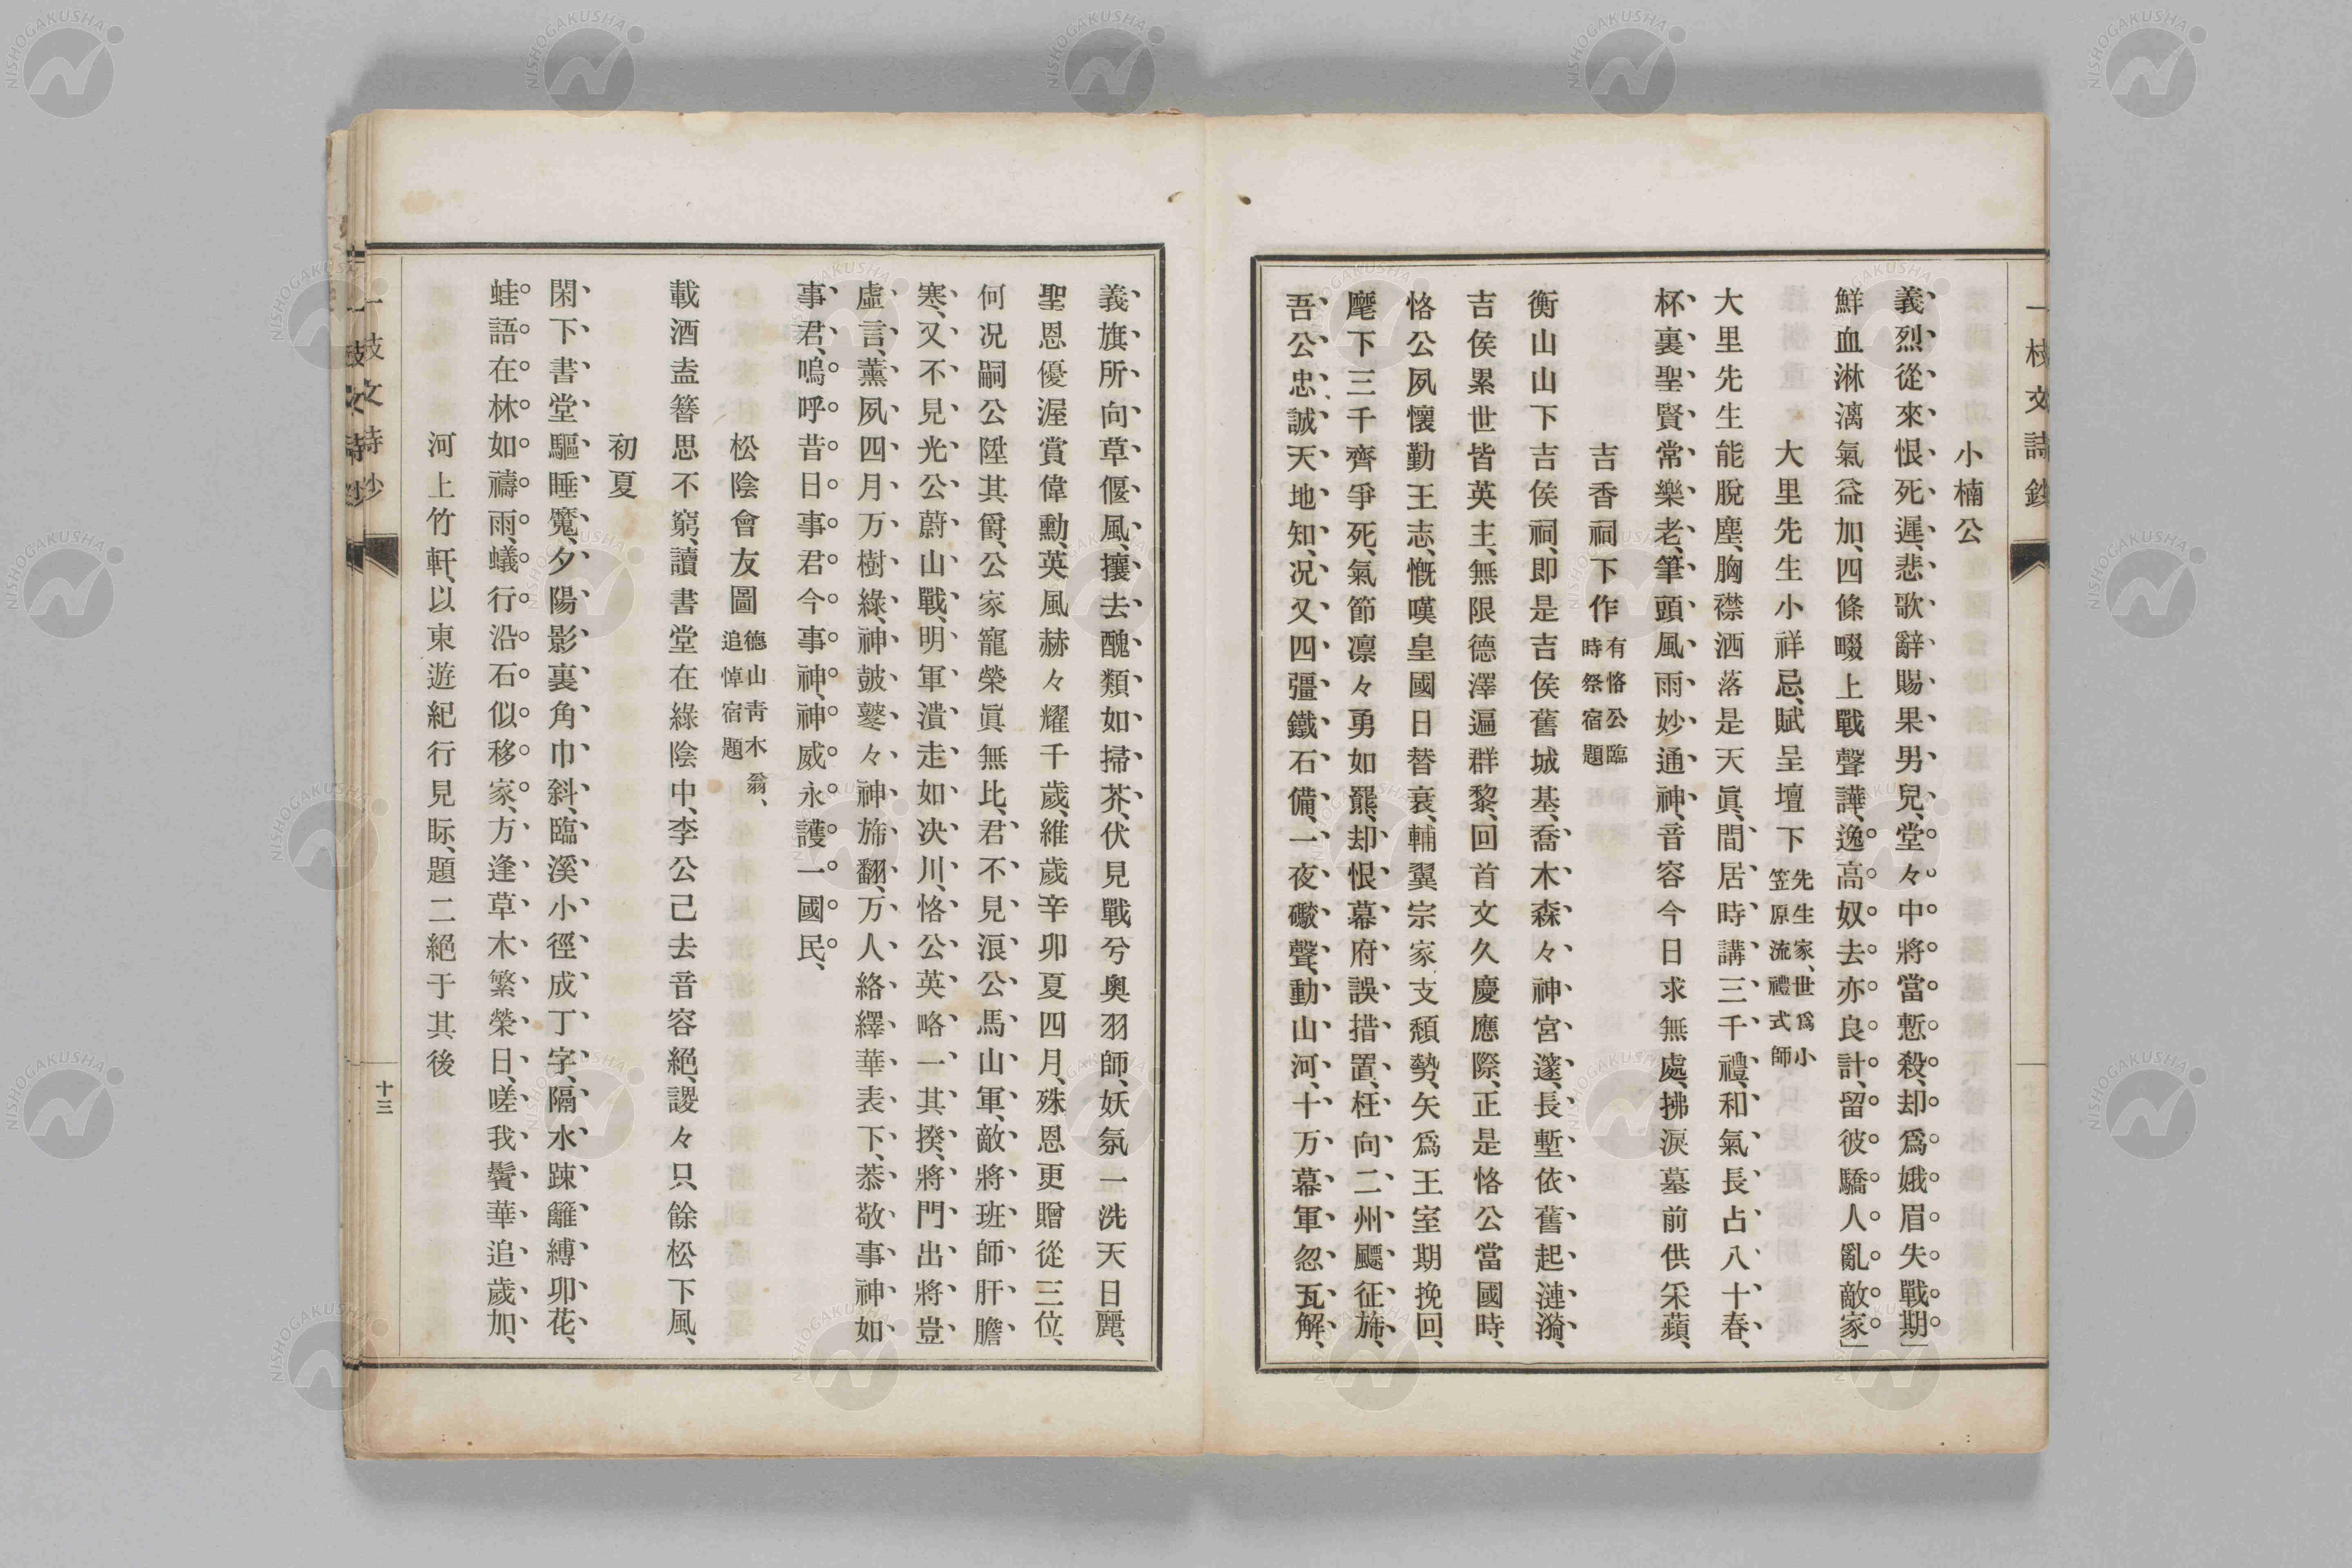 一枝文詩鈔
小楠公
義烈從來恨死遲、悲歌辭賜果男兒、堂々中將當慙殺、却爲娥眉失戰期」
鮮血淋漓氣益加、四條畷上戰聲譁、逸高奴去亦良計、留彼驕人亂敵家」
大里先生小祥忌、賦呈壇下 先生家、世爲小笠原流禮式師
大里先生能脫塵、胸襟洒落是天眞、間居時講三千禮、和氣長占八十春、
杯裏聖賢常樂老、筆頭風雨妙通神、音容今日求無處、拂淚墓前供采蘋、
吉香祠下作 有恪公臨時祭宿題
衡山山下吉侯祠、即是吉侯舊城基、喬木森々神宮邃、長塹依舊起漣漪、
吉侯累世皆英主、無限德澤遍群黎、回首文久慶應際、正是恪公當國時、
恪公夙懷勤王志、慨嘆皇國日替衰、輔翼宗家支頽勢、矢爲王室期挽回、
麾下三千齊爭死、氣節凛々勇如羆、却恨幕府誤措置、枉向二州颺征旆、
吾公忠誠天地知、况又四彊鐵石備、一夜礮聲動山河、十万幕軍忽瓦解、
義旗所向草偃風、攘去醜類如掃芥、伏見戰兮奧羽師、妖氛一洗天日麗、
聖恩優渥賞偉勳、英風赫々耀千歲、維歲辛卯夏四月、殊恩更贈從三位、
何况嗣公陞其爵、公家寵榮眞無比、君不見浪公馬山軍、敵將班師肝膽
寒、又不見光公蔚山戰、明軍潰走如决川、恪公英略一其揆、將門出將豈
虛言、薰夙四月万樹綠、神鼓鼕々神旆翻、万人絡繹華表下、恭敬事神如
事君、嗚呼昔日事君今事神、神威永護一國民、
松陰會友圖 德山靑木翁、追悼宿題
載酒盍簪思不窮、讀書堂在綠陰中、李公己去音容絕、謖々只餘松下風、
初夏
閑下書堂驅睡魔、夕陽影裏角巾斜、臨溪小徑成丁字、隔水踈籬縛卯花、
蛙語在林如禱雨、蟻行沿石似移家、方逢草木繁榮日、嗟我鬢華追歲加、
河上竹軒、以東遊紀行見眎、題二絕于其後
十三